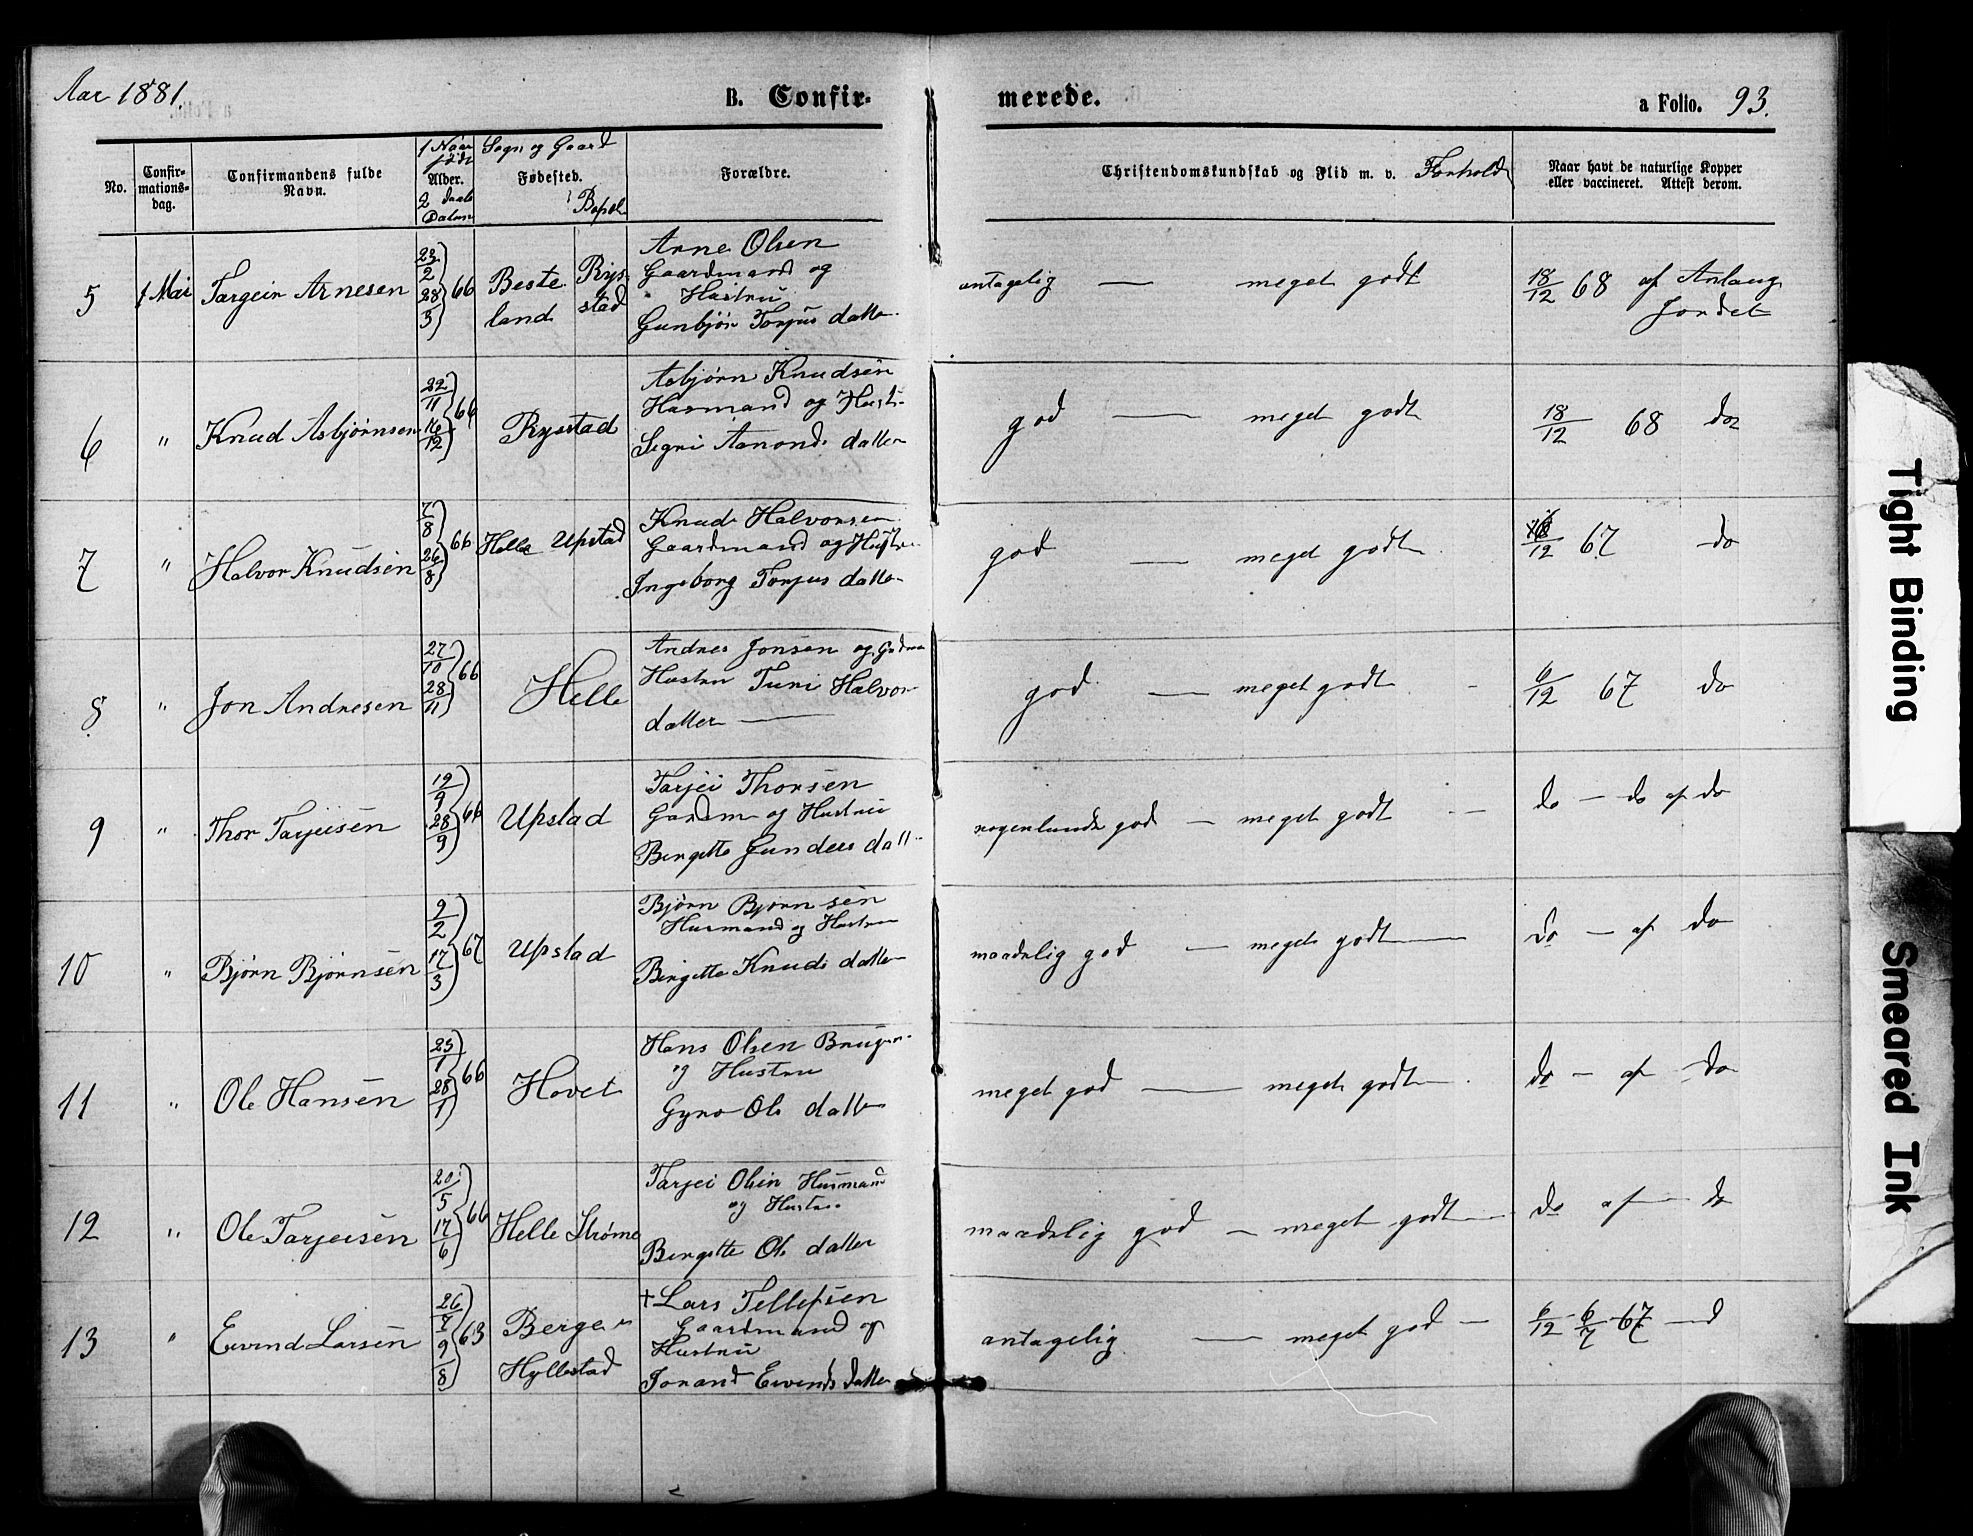 Aar 1881.
B. Confir-
merede.
a Folio. 93.
No.
Confir-
mations-
dag.
Confirmandens fulde
Navn.
1 Naar
født
Alder.
2 Daabs
Datum
Sogn og Gaard
Fødested.
Bopæl
Forældre.
Christendomskundskab og Flid m. v. Forhold
Naar havt de naturlige Kopper
eller vaccineret. Attest derom.
5 1 Mai Targeir Arnesen 23/2 28/3 66 Besteland Rysstad
Arne Olsen
Gaardmand og
Hustru
Gunbjør Torjus datter
antagelig — meget godt 18/12 68 af Anlaug
Jordet
6 " Knud Asbjørnsen 22/11 16/12 66 Rysstad
Asbjørn Knudsen
Husmand og Hust.
Segri Aanonds datter
god — meget godt 18/12 68 do
7 " Halvor Knudsen 7/8 26/8 66 Helle Upstad
Knud Halvorsen
Gaardmand og Hustru
Ingeborg Torjus datter
god — meget godt /12 67 do
8 " Jon Andresen 27/10 28/11 66 Helle
Andres Jonsen og
Hustru Turi Halvor
datter —
god — meget godt - 6/12 67 do
9 " Thor Tarjeisen 19/9 28/9 66 Upstad
Tarjei Thorsen
Gardm og Hustru
Bergitte Gunders datt
nogenlunde god — meget godt — do — do af do
10 " Bjørn Bjørnsen 9/2 17/3 67 Upstad
Bjørn Bjørnsen
Husmand og Hustru
Birgitte Knuds datter
maadelig god — meget godt — do — af do
11 " Ole Hansen 23/1 28/1 66 Hovet
Hans Olsen Bruger
og Hustru
Gyro Ols datter
meget god — meget godt — do — af do
12 " Ole Tarjeisen 20/5 17/6 66 Helle Strøme
Tarjei Olsen Husmand
og Hustru
Bergitte Ols datter
maadelig god — meget godt — do af — do
13 " Eivind Larsen 26/7 9/8 63 Berge
Hyllestad
† Lars Tellefsen
Gaardmand og
Hustru
Jorand Eivinds datter
antagelig — meget god — 6/12 - 6/7 - 67 — d
Tight Binding
Smeared Ink